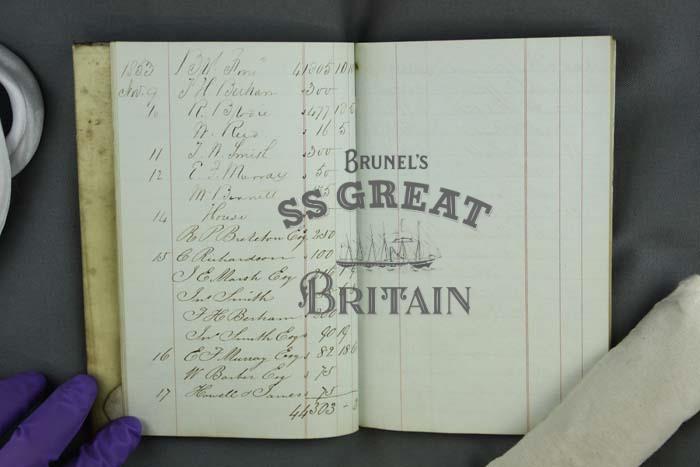 1853 41805 10
Nov. 9 J H Barham 300
10 R. 477
W. Reid 16 5
11 J W Smith 300
12 E F Murray 50
W Bonnett
14 House
R P Brereton Esq 250
15 C Richardson 100
J E Marsh Esq
Jno Smith
F H Barham
Jno Smith Esq 90 19
16 E F Murray Esq 82 18 6
W Barber Esq 75
17 Howell & James 75
44303
BRUNEL'S
SS GREAT
BRITAIN